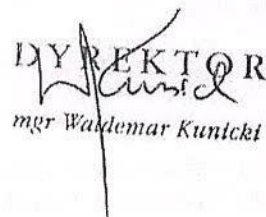 DYREKTOR
mgr Waldemar Kunicki